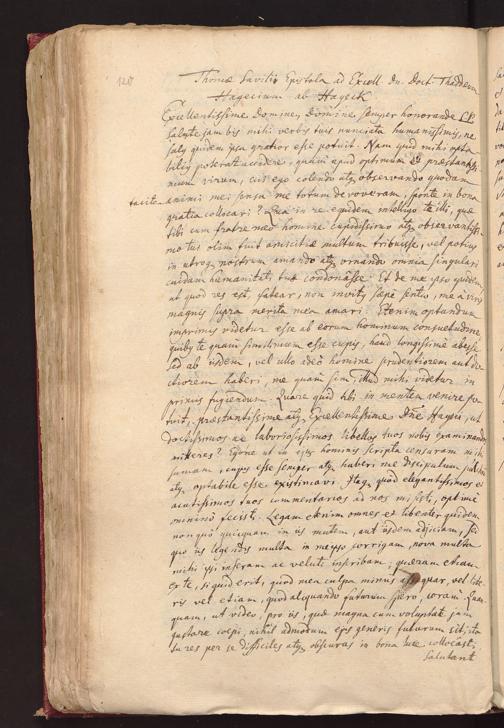 120
Thomæ Savilii Epistola ad Excell. dn. Doct. Thaddæum
Hagecium ab Hayck
Excellentissime Domine, Domine semper honorande S.P.
Salute jam bis mihi verbis tuis nunciata humanissimis, ne
salus quidem ipsa gratior esse potuit. Nam quid mihi opta
bilius poterat accidere, quam apud optimum et præstantissi-
mum virum, cui ego colendo atq observando quodam
tacite animi mei sensu me totum devoveram, sponte in bona
gratia collocari? Qua in re equidem intelligo te illi, quæ
tibi cum fratre meo homine cupidissimo atq observantissi
mo tui olim fuit amicitiæ multum tribuisse, vel potius
in utroq nostrum amando atq ornando omnia singulari
cuidam humanitati tuæ condonasse. Et de me ipso quidem
ut quod res est, fatear, non invitus sæpe sentio, me a viris
magnis supra merita mea amari. Etenim optandum
imprimis videtur esse ab eorum hominum consuetudine
quibus te quam simillimum esse cupis, haud longissime abesse
sed ab iisdem, vel ullo ideo homine prudentiorem aut do
ctiorem haberi, me quam sim, illud mihi videtur in
primis fugiendum. Quare quid tibi in mentem venire po
tuit, præstantissime atq Excellentissime Dne Hageci, ut
doctissimos ac laboriosissimos libellos tuos nobis examinandos
mitteres? Egone ut in ejus hominis scripta censuram mihi
sumam, cujus esse semper atq haberi me discipulum
atq optabile esse existimavi. Itaq quod elegantissimos et
acutissimos tuos commentarios ad nos misisti, optime
omnino fecisti. Legam etenim omnes et libenter quidem
non quo quicquam in iis mutem, aut iisdem adjiciam, sed
quo iis legendis multa in meipso corrigam, nova multa
mihi ipsi inferam ac veluti inscribam; quæram etiam
ex te, si quid erit, quod mea culpa minus assequar, vel lite
ris vel etiam, quod aliquando futurum spero, coram. Quan
quam, ut video, pro iis, quæ magna cum voluptate jam
gustare coepi, nihil admodum ejus generis futurum sit, ita
tu res per se difficiles atq obscuras in bona luce collocasti.
Salutant